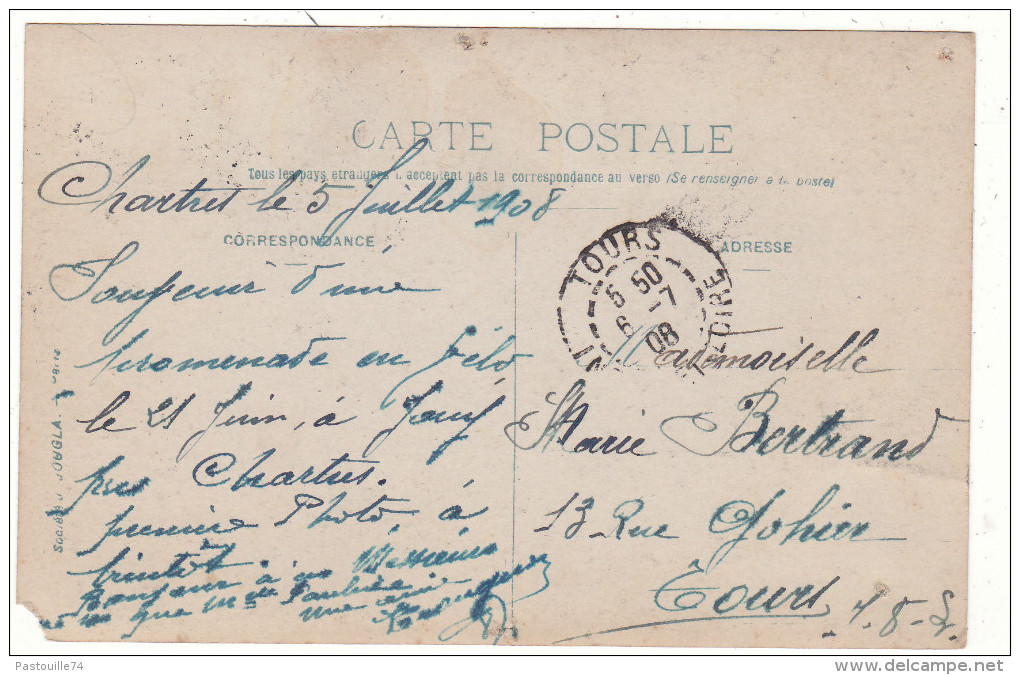 CARTE POSTALE
Tous les pays étrangers n'acceptent pas la correspondance au verso (Se renseigner à la poste)
Chartres le 5 Juillet 1908
CORRESPONDANCE
ADRESSE
TOURS
5 50
6 -7
08
LOIRE
Souvenir d'une
promenade en Vélo
le 21 Juin, à Jouy
près Chartres.
première Photo, à
bientôt.
Bonjour à Messieurs
que Mlle
une amie
Mademoiselle
Marie Bertrand
13 Rue Gohier
Tours
SOCIÉTÉ JOUGLA PARIS
Pastouille74
www.delcampe.net